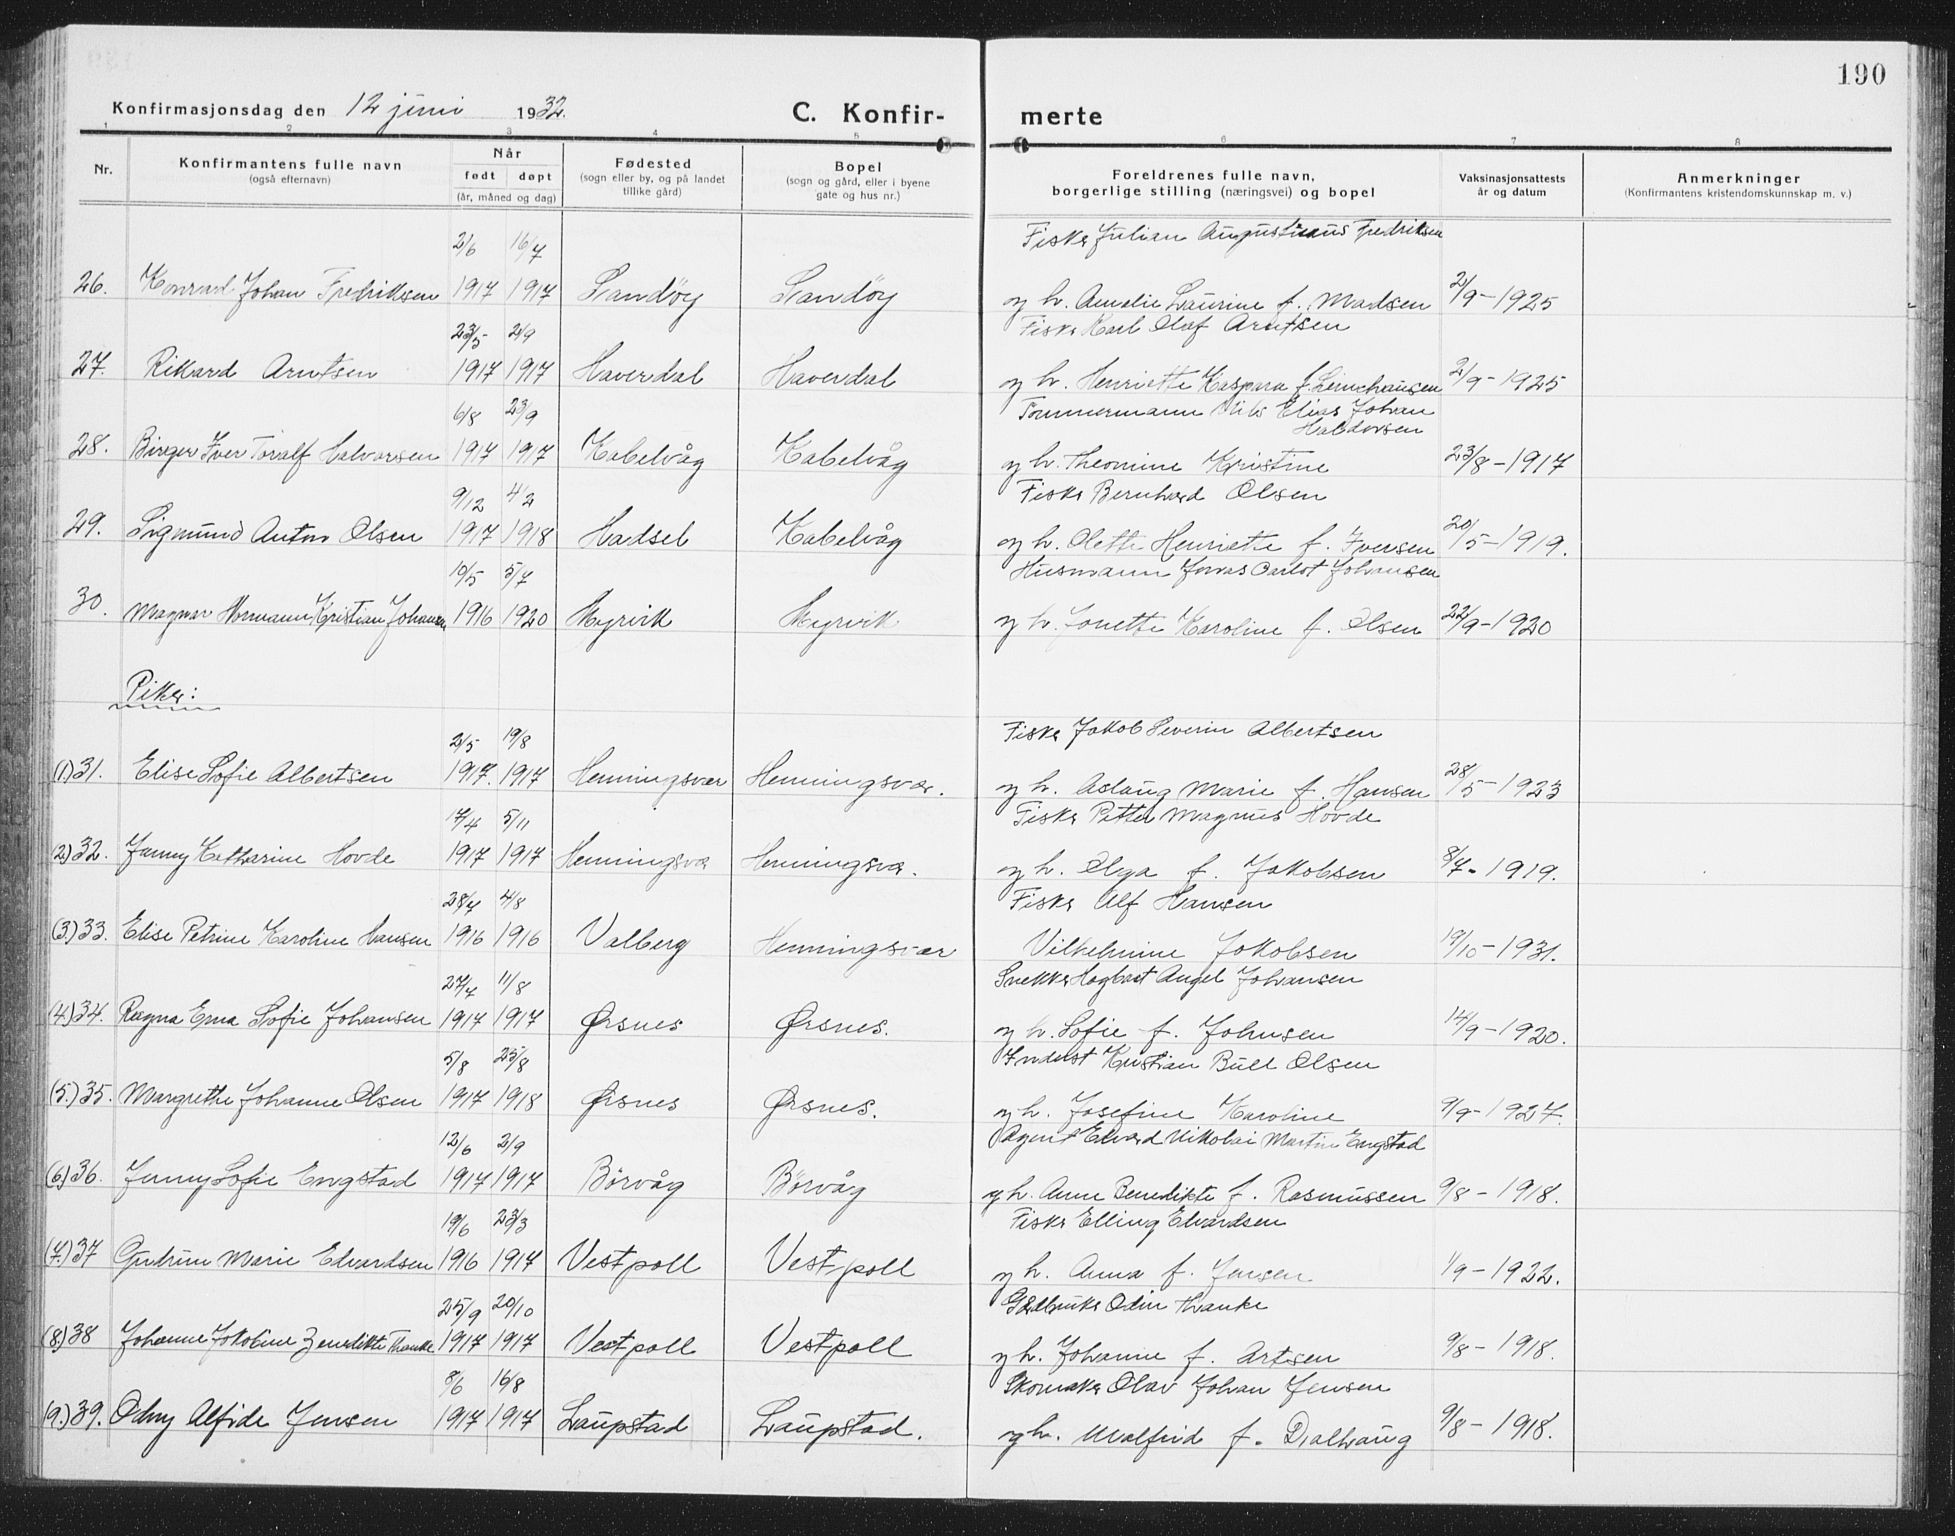 190
Konfirmasjonsdag den 12 juni 1932.
C. Konfir-
merte
1 2 3 4 5 6 7 8
Nr.
Konfirmantens fulle navn
(også efternavn)
Når
født døpt
(år, måned og dag)
Fødested
(sogn eller by, og på landet
tillike gård)
Bopel
(sogn og gård, eller i byene
gate og hus nr.)
Foreldrenes fulle navn,
borgerlige stilling (næringsvei) og bopel
Vaksinasjonsattests
år og datum
Anmerkninger
(Konfirmantens kristendomskunnskap m. v.)
2/6 16/7 Fisker Julian Augustinaus Fredriksen
26. Konrad Johan Fredriksen 1917 1917 Sandøy Sandøy og h. Amalie Laurine f. Madsen 2/9-1925
23/5 2/9 Fisker Karl Olaf Arntsen
27. Rikard Arntsen 1917 1917 Haverdal Haverdal og h. Henriette Kaspara f. 2/9-1925
6/8 23/9 Tømmermann Nils Elias Johan
Haldorsen
28. Birger Iver Toralf Halvorsen 1917 1917 Kabelvåg Kabelvåg og h. Theonine Kristine 23/8-1917
9/12 4/2 Fisker Bernhard Olsen
29. Sigmund Anton Olsen 1917 1918 Hadsel Kabelvåg og h. Olette Henriette f. Iversen 20/5-1919.
10/5 5/7 Husmann Jonas Carlot Johansen
30. Magnar Hermann Kristian Johansen 1916 1920 Myrvik Myrvik og h. Jonette Karoline f. Olsen 22/9-1920
Piker:
2/5 19/8 Fisker Jakob Severin Albertsen
(1) 31. Elise Sofie Albertsen 1917. 1917 Henningsvær Henningsvær. og h. Aslaug Marie f. Hansen 28/5-1923
17/4 5/11 Fisker Petter Magnus Hovde
2) 32. Jenny Katharine Hovde 1917 1917 Henningsvær Henningsvær. og h. Olga f. Jakobsen 8/7-1919.
28/7 4/8 Fisker Alf Hansen
(3.) 33. Elise Petrine Karoline Hansen 1916 1916 Valberg Henningsvær Vilhelmine Jakobsen 19/10-1931.
27/7 11/8 Snekker Hagbart Angel Johansen
(4.) 34. Ragna Erna Sofie Johansen 1917 1917 Ørsnes Ørsnes. og h. Sofie f. Johnsen 14/9-1920.
5/8 25/8 Indust Kristian Bull Olsen
(5.) 35. Margrethe Johanne Olsen 1917 1918 Ørsnes Ørsnes. og h. Josefine Karoline 9/9-1927.
12/6 2/9 Agent Edvard Nikolai Martin Engstad
(6) 36. Jenny Sofie Engstad 1917 1917 Børvåg Børvåg og h. Anne Benedikte f. Rasmussen 9/8-1918.
19/6 23/3 Fisker Elling Edvardsen
(7.) 37 Gudrun Marie Edvardsen 1916 1917 Vestpoll Vestpoll og h. Anna f. Jensen 1/9-1922.
25/9 20/10 Gårdbruker Odin Hanke
(8.) 38 Johanne Jakobine Benedikte Hanke 1917 1917 Vestpoll Vestpoll og h. Johanne f. Artsen 9/8-1918.
8/6 16/8 Skomaker Olav Johan Jensen
(9.) 39. Odny Alfide Jensen 1917 1917 Laupstad Laupstad. og h. Malfrid f. Dalhaug 9/8-1918.